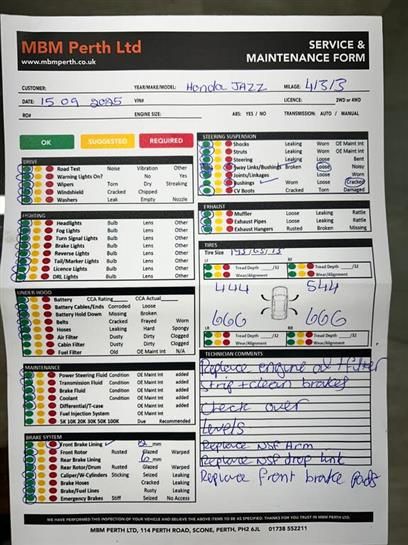 MBM Perth Ltd
www.mbmperth.co.uk
SERVICE &
MAINTENANCE FORM
CUSTOMER: YEAR/MAKE/MODEL: Honda JAZZ MILAGE: 41313
DATE: 15 09 2025 VIN# LICENCE: 2WD or 4WD
RO# ENGINE SIZE: ABS: YES / NO TRANSMISSION: AUTO / MANUAL
OK SUGGESTED REQUIRED
DRIVE
Road Test Noise Vibration Other
Warning Lights On? No Yes
Wipers Torn Dry Streaking
Windshield Cracked Chipped
Washers Leak Empty Nuzzle
LIGHTING
Headlights Bulb Lens Other
Fog Lights Bulb Lens Other
Turn Signal Lights Bulb Lens Other
Brake Lights Bulb Lens Other
Reverse Lights Bulb Lens Other
Tail/Marker Lights Bulb Lens Other
Licence Lights Bulb Lens Other
DRL Lights Bulb Lens Other
UNDER HOOD
Battery CCA Rating CCA Actual
Battery Cables/Ends Corroded Loose
Battery Hold Down Missing Broken
Belts Cracked Frayed Worn
Hoses Leaking Hard Spongy
Air Filter Dusty Dirty Clogged
Cabin Filter Dusty Dirty Clogged
Fuel Filter Old OE Maint Int N/A
MAINTENANCE
Power Steering Fluid Condition OE Maint Int added
Transmission Fluid Condition OE Maint Int added
Brake Fluid Condition OE Maint Int added
Coolant Condition OE Maint Int added
Differential/T-case OE Maint Int added
Fuel Injection System OE Maint Int
5K 10K 20K 30K 50K 100K Due Recommended
BRAKE SYSTEM
Front Brake Lining mm
Front Rotor Rusted Glazed Warped
Rear Brake Lining 6 mm
Rear Rotor/Drum Rusted Glazed Warped
Caliper/W-Cylinders Sticking Seized Leaking
Brake Hoses Cracked Leaking
Brake/Fuel Lines Rusty Leaking
Emergency Brakes Stiff Seized No Access
STEERING SUSPENSION
Shocks Leaking Worn OE Maint Int
Struts Leaking Worn OE Maint Int
Steering Leaking Loose Worn
Sway Links/Bushings Broken Loose Noisy
Joints/Linkages Loose Worn
Bushings Worn Loose Cracked
CV Boots Cracked Torn Damaged
EXHAUST
Muffler Loose Leaking Rattle
Exhaust Pipes Loose Leaking Rattle
Exhaust Hangers Rusted Broken Missing
TIRES
Tire Size
LF RF
Tread Depth /32 Tread Depth /32
Wear/Alignment Wear/Alignment
444 544
666 666
LR RR
Tread Depth /32 Tread Depth /32
Wear/Alignment Wear/Alignment
TECHNICIAN COMMENTS
Replace engine oil / filter
Strip + clean brakes
Check over
Levels
Replace NSF Arm
Replace NSF drop link
Replace front brake pads
WE HAVE PERFORMED THIS INSPECTION OF YOUR VEHICLE AND BELIEVE THE ABOVE ITEMS TO BE AS SPECIFIED. THANKS FOR YOU TRUST IN MBM PERTH LTD.
MBM PERTH LTD, 114 PERTH ROAD, SCONE, PERTH, PH2 6JL 01738 552211